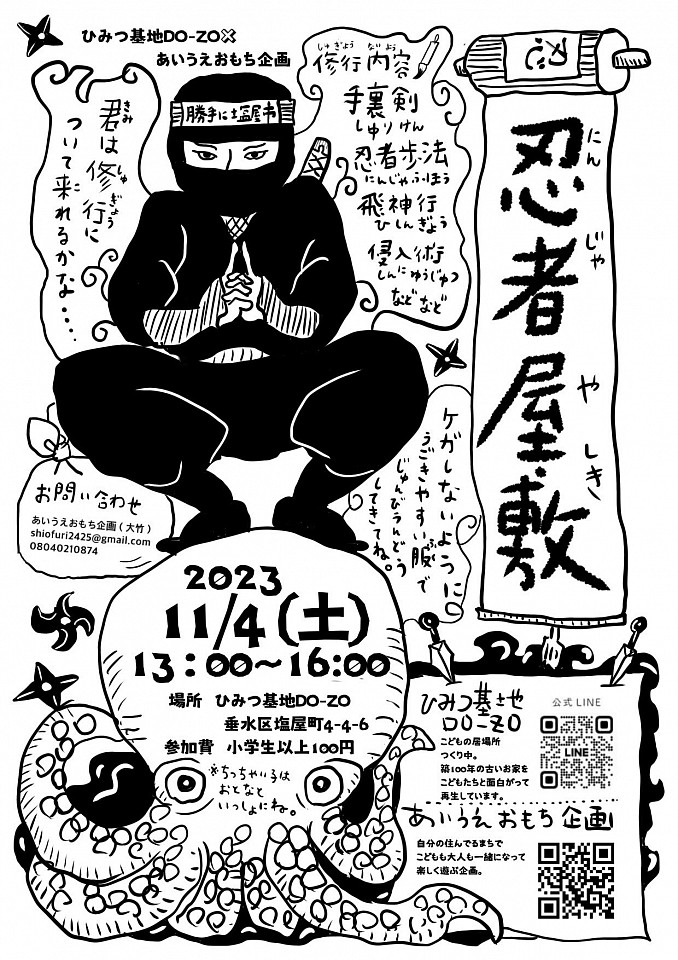 ひみつ基地DO-ZO×
あいうえおもち企画
忍
忍者屋敷
にんじゃやしき
勝手に塩屋市
修行内容
しゅぎょうないよう
手裏剣
しゅりけん
忍者歩法
にんじゃふほう
飛神行
ひしんぎょう
侵入術
しんにゅうじゅつ
などなど
君は修行に
きみ しゅぎょう
ついて来れるかな...
ケガしないように。
うごきやすい服で
ふく
じゅんびうんどう
してきてね。
お問い合わせ
あいうえおもち企画(大竹)
shiofuri2425@gmail.com
08040210874
2023
11/4(土)
13:00~16:00
場所 ひみつ基地DO-ZO
垂水区塩屋町4-4-6
参加費 小学生以上100円
※ちっちゃい子は
おとなと
いっしょにね。
ひみつ基地
DO-ZO
こどもの居場所
つくり中。
築100年の古いお家を
こどもたちと面白がって
再生しています。
公式LINE
LINE
あいうえおもち企画
自分の住んでるまちで
こどもも大人も一緒になって
楽しく遊ぶ企画。